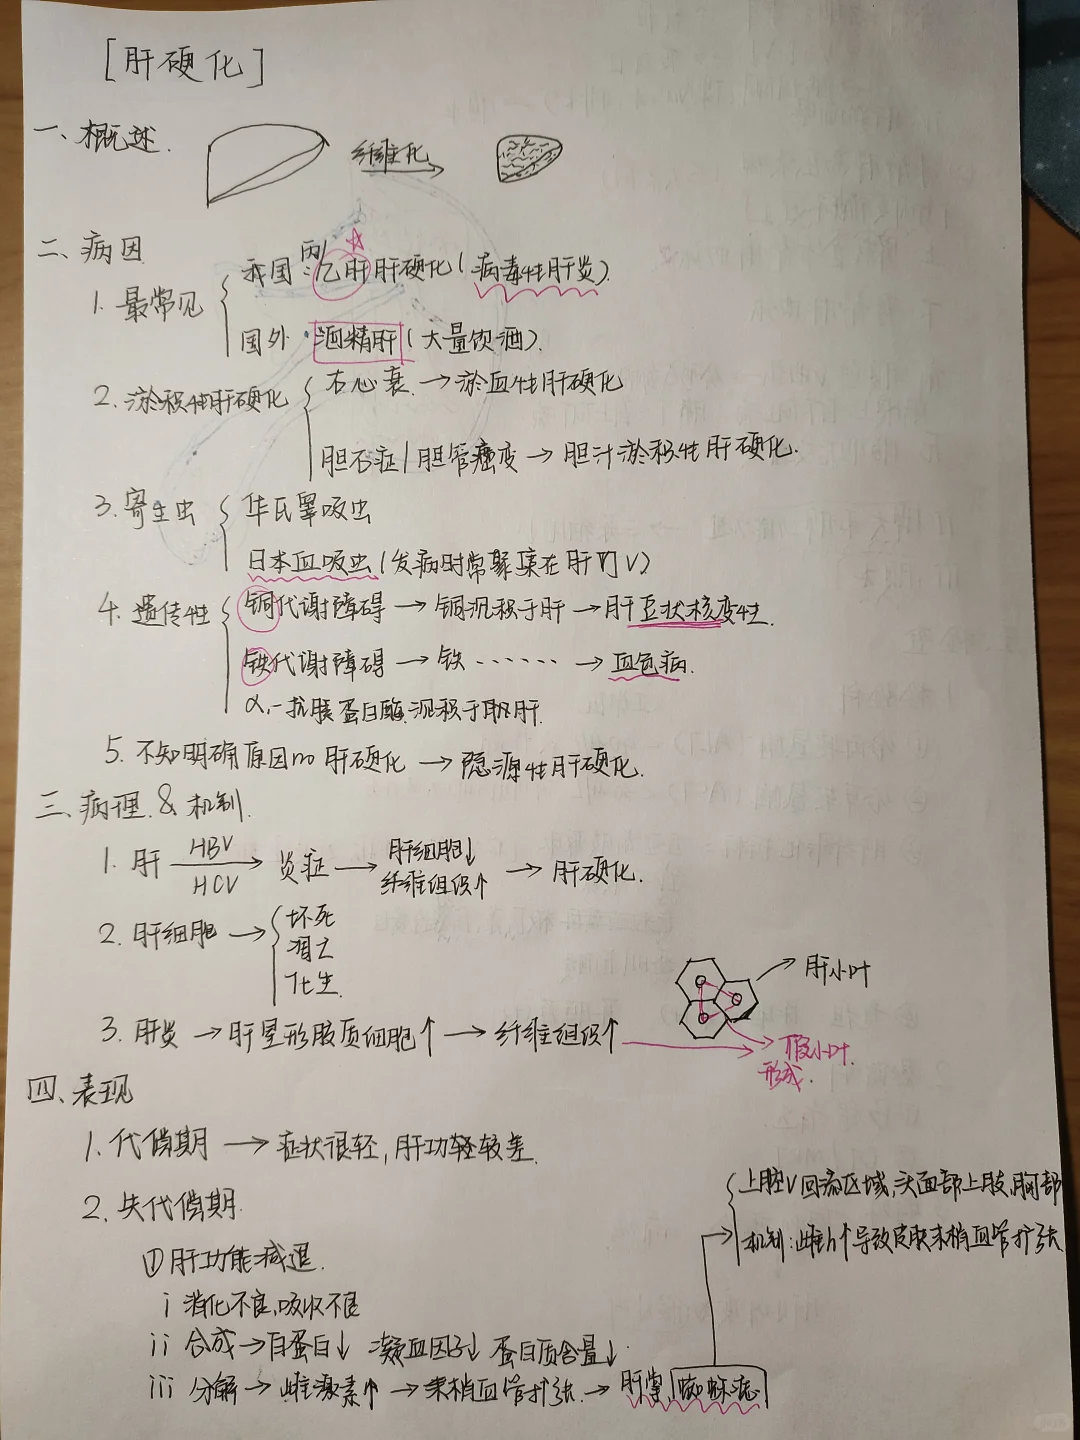 [肝硬化]
一、概述.
纤维化
二、病因
1. 最常见
我国 丙/乙肝肝硬化(病毒性肝炎).
国外·酒精肝(大量饮酒).
2. 淤积性肝硬化
右心衰. → 淤血性肝硬化
胆石症/胆管癌变 → 胆汁淤积性肝硬化.
3. 寄生虫
华氏睾吸虫
日本血吸虫(发病时常聚集在肝门V)
4. 遗传性
铜代谢障碍 → 铜沉积于肝 → 肝豆状核变性.
铁代谢障碍 → 铁 ······ → 血色病.
α₁-抗胰蛋白酶.沉积于肝.
5. 不知明确原因的肝硬化 → 隐源性肝硬化.
三、病理.&机制.
1. 肝 HBV HCV → 炎症 → 肝细胞↓ 纤维组织↑ → 肝硬化.
2. 肝细胞 → 坏死
凋亡
化生.
肝小叶
3. 肝炎 → 肝星形胶质细胞↑ → 纤维组织↑
假小叶.
形成.
四、表现
1. 代偿期 → 症状很轻,肝功轻较差.
2. 失代偿期.
上腔V回流区域,头面部上肢,胸部
机制:雌h↑导致皮肤末梢血管扩张
①肝功能减退.
i 消化不良,吸收不良
ii 合成→白蛋白↓ 凝血因子↓ 蛋白质含量↓.
iii 分解 → 雌激素↑ → 末梢血管扩张. → 肝掌,蜘蛛痣